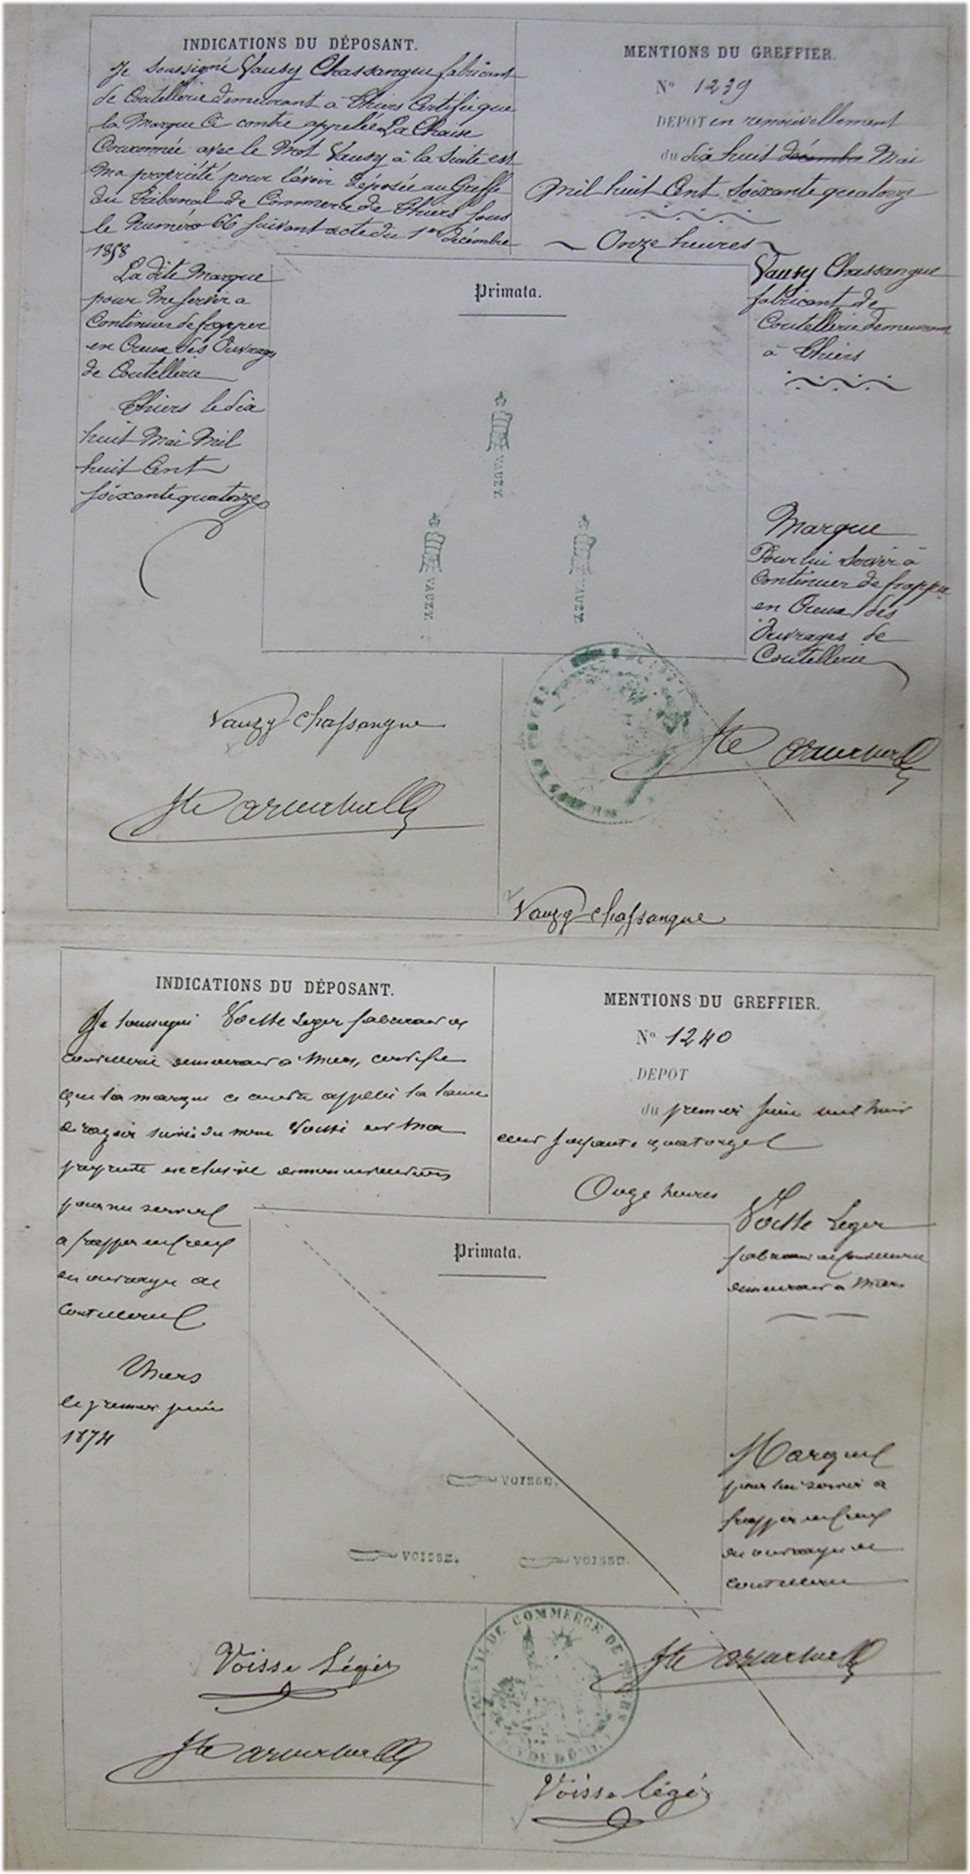 INDICATIONS DU DÉPOSANT.
Je soussigné Vauzy Chassangue fabricant
de Coutellerie demeurant à Thiers Certifie que
la Marque Ci contre appelée La Chaise
Couronnée avec le Mot Vauzy à la Suite est
Ma propriété pour l'avoir déposée au Greffe
du Tribunal de Commerce de Thiers Sous
le Numéro 66 suivant acte du 1er décembre
1858
La dite Marque
pour Me Servir a
Continuer de frapper
en Creux des Ouvrages
de Coutellerie
Thiers le dix
huit Mai Mil
huit Cent
soixante quatorze
MENTIONS DU GREFFIER.
No 1239
DEPOT en renouvellement
du dix huit décembre Mai
Mil huit Cent Soixante quatorze
Onze heures
Vauzy Chassangue
fabricant de
Coutellerie demeurant
à Thiers
Primata.
VAUZY.
VAUZY.
VAUZY.
Marque
Pour lui Servir à
Continuer de frapper
en Creux des
Ouvrages de
Coutellerie
Vauzy Chassangue
Vauzy Chassangue
INDICATIONS DU DÉPOSANT.
Je soussigné Voisse Leger fabricant de
coutellerie demeurant à Thiers, certifie
que la marque ci contre appelée la lame
de razoir suivie du nom Voisse est ma
propriété exclusive
pour me servir
a frapper en creux
des ouvrages de
Coutellerie
Thiers
le premier juin
1874
MENTIONS DU GREFFIER.
No 1240
DEPOT
du premier juin mil huit
cent soixante quatorze
Onze heures
Voisse Leger
fabricant de Coutellerie
demeurant a Thiers
Primata.
VOISSE.
VOISSE.
VOISSE.
Marque
pour lui servir a
frapper en creux
des ouvrages de
coutellerie
DE COMMERCE DE THIERS
PUY DE DÔME
Voisse Léger
Voisse Léger